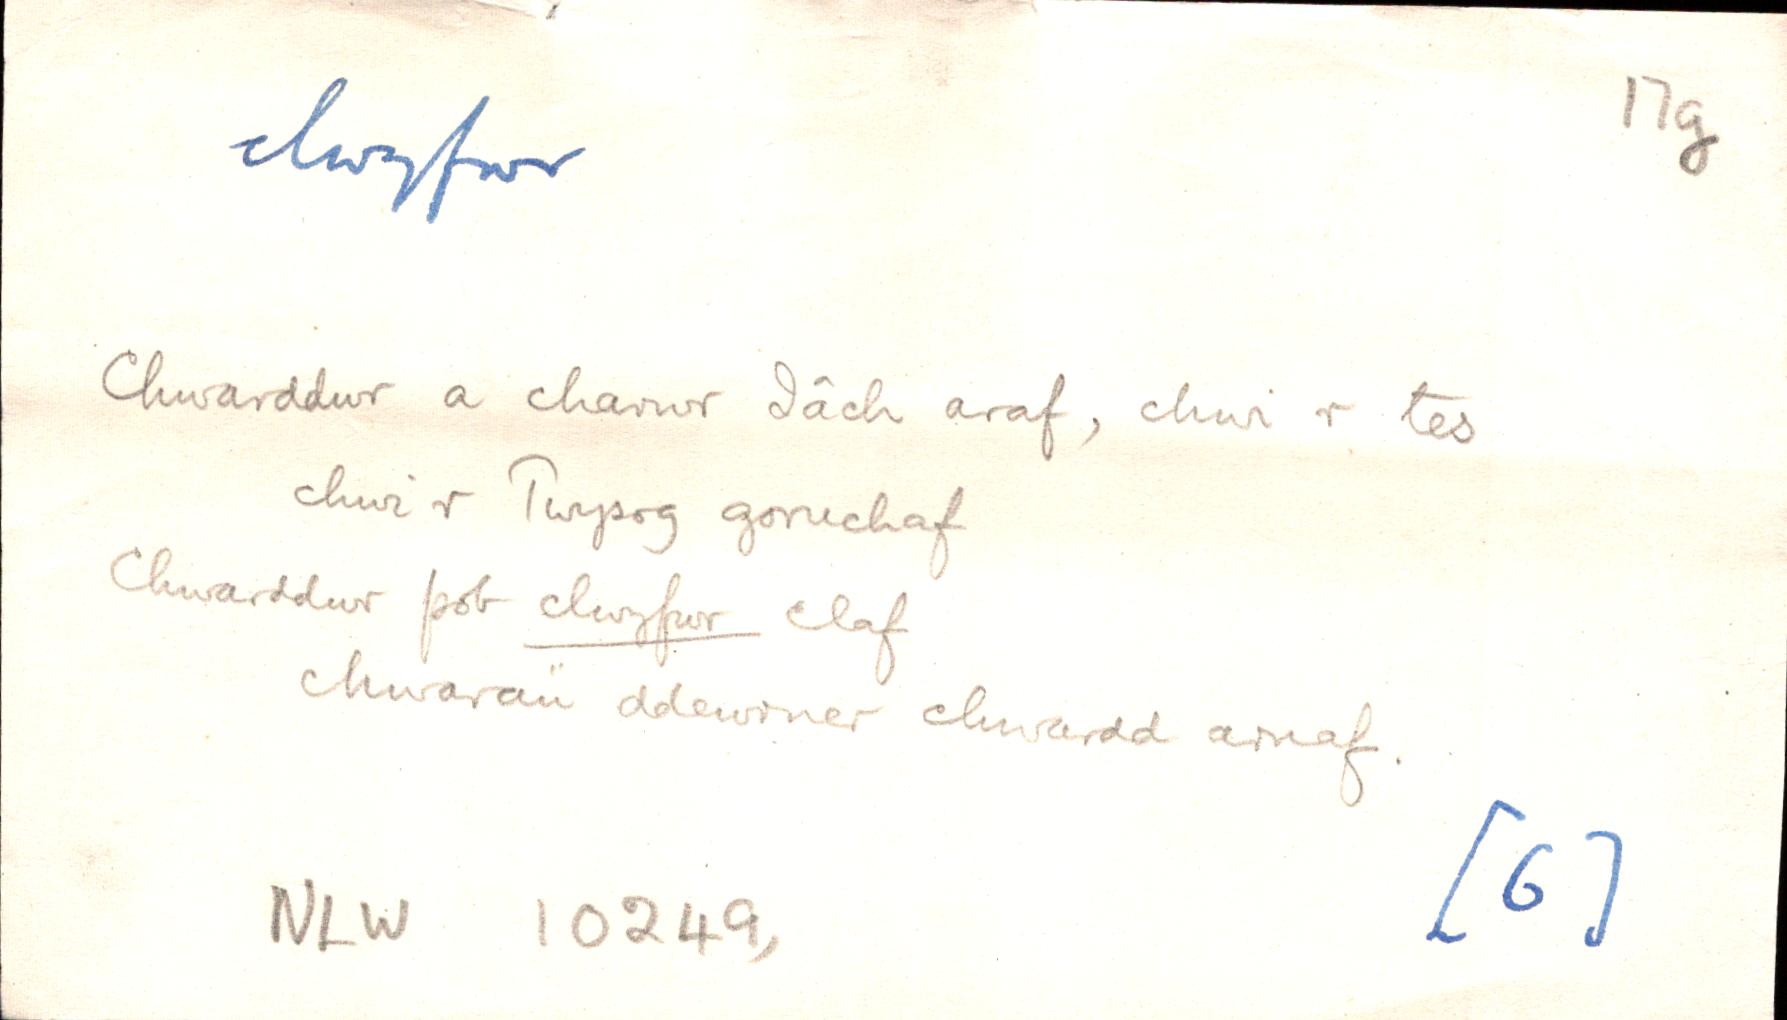 clwyfwr
17g
Chwarddwr a charwr dâch araf, chwi r tes
chwi r Twysog goruchaf
Chwarddwr pob clwyfwr claf
chwaraü ddewiner chwardd arnaf.
[6]
NLW 10249,